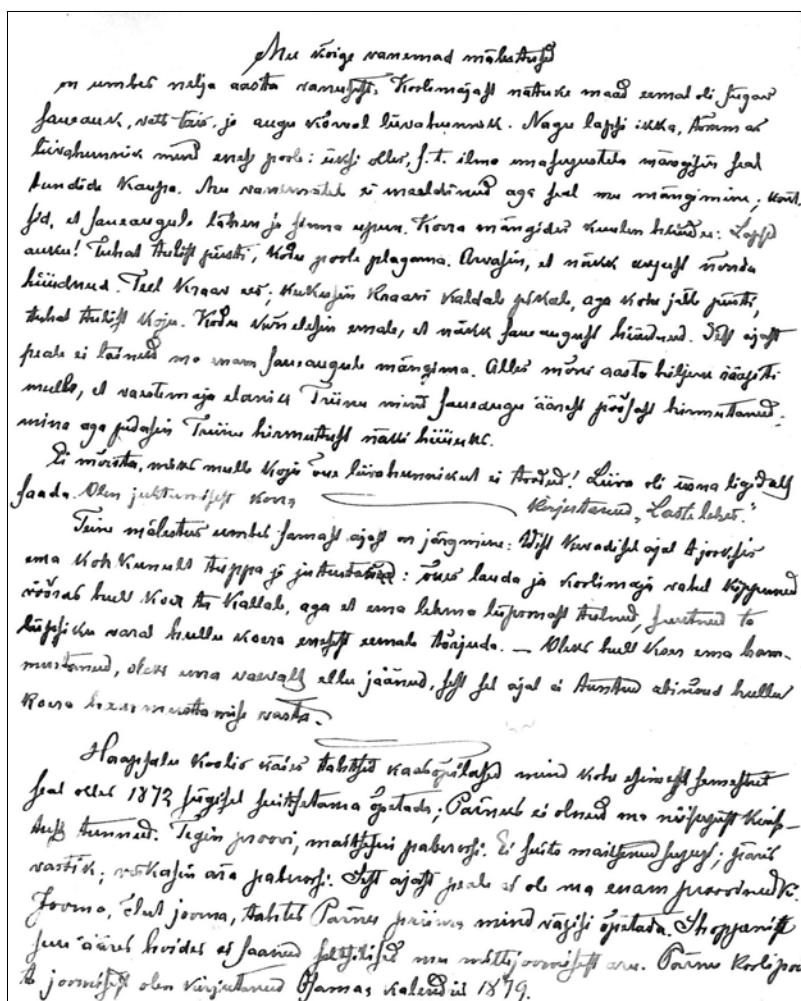 Mu kõige vanemad mälestused
on umbes nelja aasta vanusest. Koolimajast natuke maad eemal oli sügav
saueauk, vett täis, ja augu kõrval liivahunnik. Nagu lapsi ikka, tõmmas
liivahunnik mind enese poole: üksi olles, s.t. ilma emasugusteta mängisin seal
tundide kaupa. Mu vanematele ei meeldinud aga seal mu mängimine; kart-
sid, et saueaugule lähen ja sinna upun. Korra mängides kuulen hüüdes: Lapsed
auku! Tuhat tulist püsti, kodu poole plagama. Arvasin, et näkk august nõnda
hüüdnud. Teel kraav ees; kukusin kraavi kaldale pikale, aga kohe jälle püsti,
tuhat tulist koju. Kodu kõnelesin emale, et näkk saueaugust hüüdnud. Sest ajast
peale ei läinud ma enam saueaugule mängima. Alles mõni aasta hiljem räägiti
mulle, et vaestemaja elanik Triinu mind saueaugu äärest põõsast hirmutanud;
mina aga pidasin Triinu hirmutust näkki hüüuks.
Ei mõista, miks mulle koju õue liivahunnikut ei toodud! Liiva oli üsna ligidalt
saada. Olen juhtumisest korra kirjutanud „Laste lehes.”
Teine mälestus umbes samast ajast on järgmine: Wist kevadisel ajal tjooksis
ema kohkunult tuppa ja jutustas: õues lauda ja koolimaja vahel kippunud
võõras hull koer ta kallale, aga et ema lehma lüpsmast tulnud, suutnud ta
lüpsiku varal hullu koera enesest eemale tõrjuda. — Oleks hull koer ema ham-
mustanud, oleks ema vaevalt ellu jäänud, sest sel ajal ei tuntud abinõud hullu
koera hammustamise vasta.
Haapsalu koolis käies tahtsid kaasõpilased mind kohe esimesest semestrist
seal olles 1872 sügisel suitsetama õpetada; Pärnus ei olnud ma niisugust kius-
tust tunnud. Tegin proovi, maitsesin paberossi. Ei suits maitsenud sugugi; päris
vastik; viskasin ära paberossi. Sest ajast peale ei ole ma enam proovinudki.
Jooma, õlut jooma, tahtis Pärnu priima mind vägisi õpetada. Shoppenist
suu ääres hoides ei saanud seltsilised mu mittejoomisest aru. Pärnu koolipoi-
te joomisest olen kirjutanud Oΐamaa kalendris 1879.